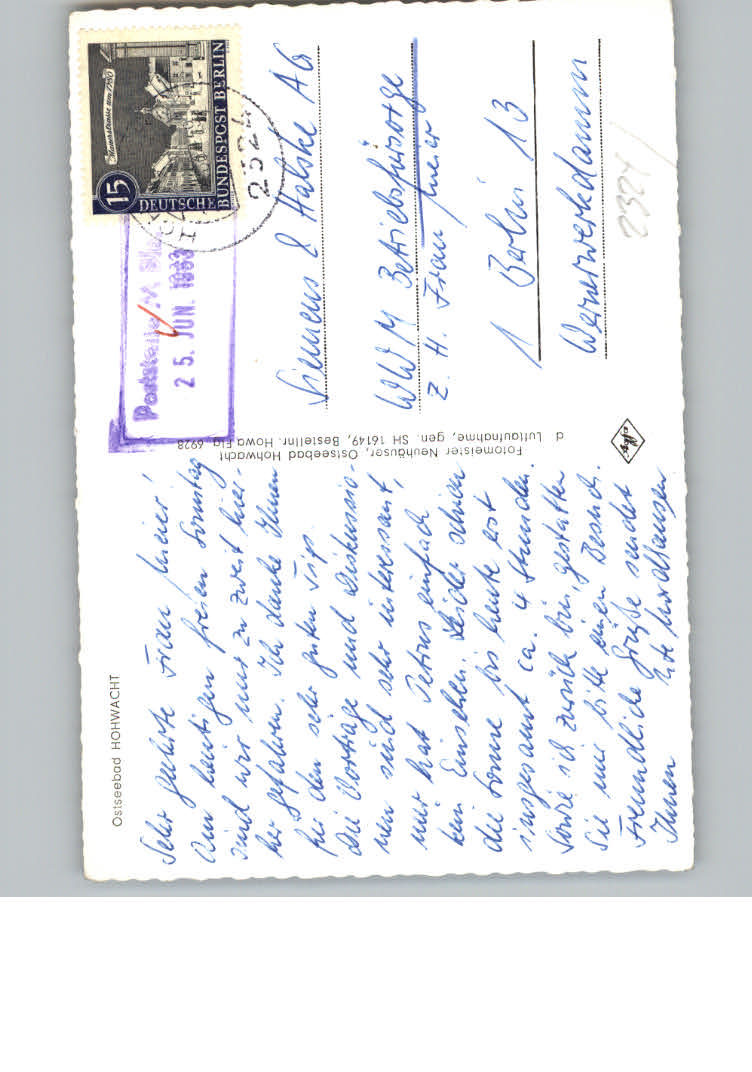 Ostseebad HOHWACHT
Sehr geehrte Frau Meier!
Am heutigen freien Sonntag
sind wir nur zu zweit hier-
her gefahren. Ich danke Ihnen
für den sehr guten Tip.
Die Vorträge und Diskussio-
nen sind sehr interessant,
nur hat Petrus einfach
kein Einsehen. Leider schien
die Sonne bis heute erst
insgesamt ca. 4 Stunden.
Sowie ich zurück bin, gestatten
Sie mir bitte einen Besuch.
Freundliche Grüße sendet
Ihnen Ute
Fotomeister Neuhäuser, Ostseebad Hohwacht
d. Luftaufnahme, gen. SH 16149, Bestellnr. Howa Flg 6928
Agfa
Poststelle
25. JUN. 1963
15
DEUTSCHE
BUNDESPOST BERLIN
2324
Siemens & Halske AG
WWM Betriebsfürsorge
z. H. Frau Meier
1 Berlin 13
Wernerwerkdamm
2324